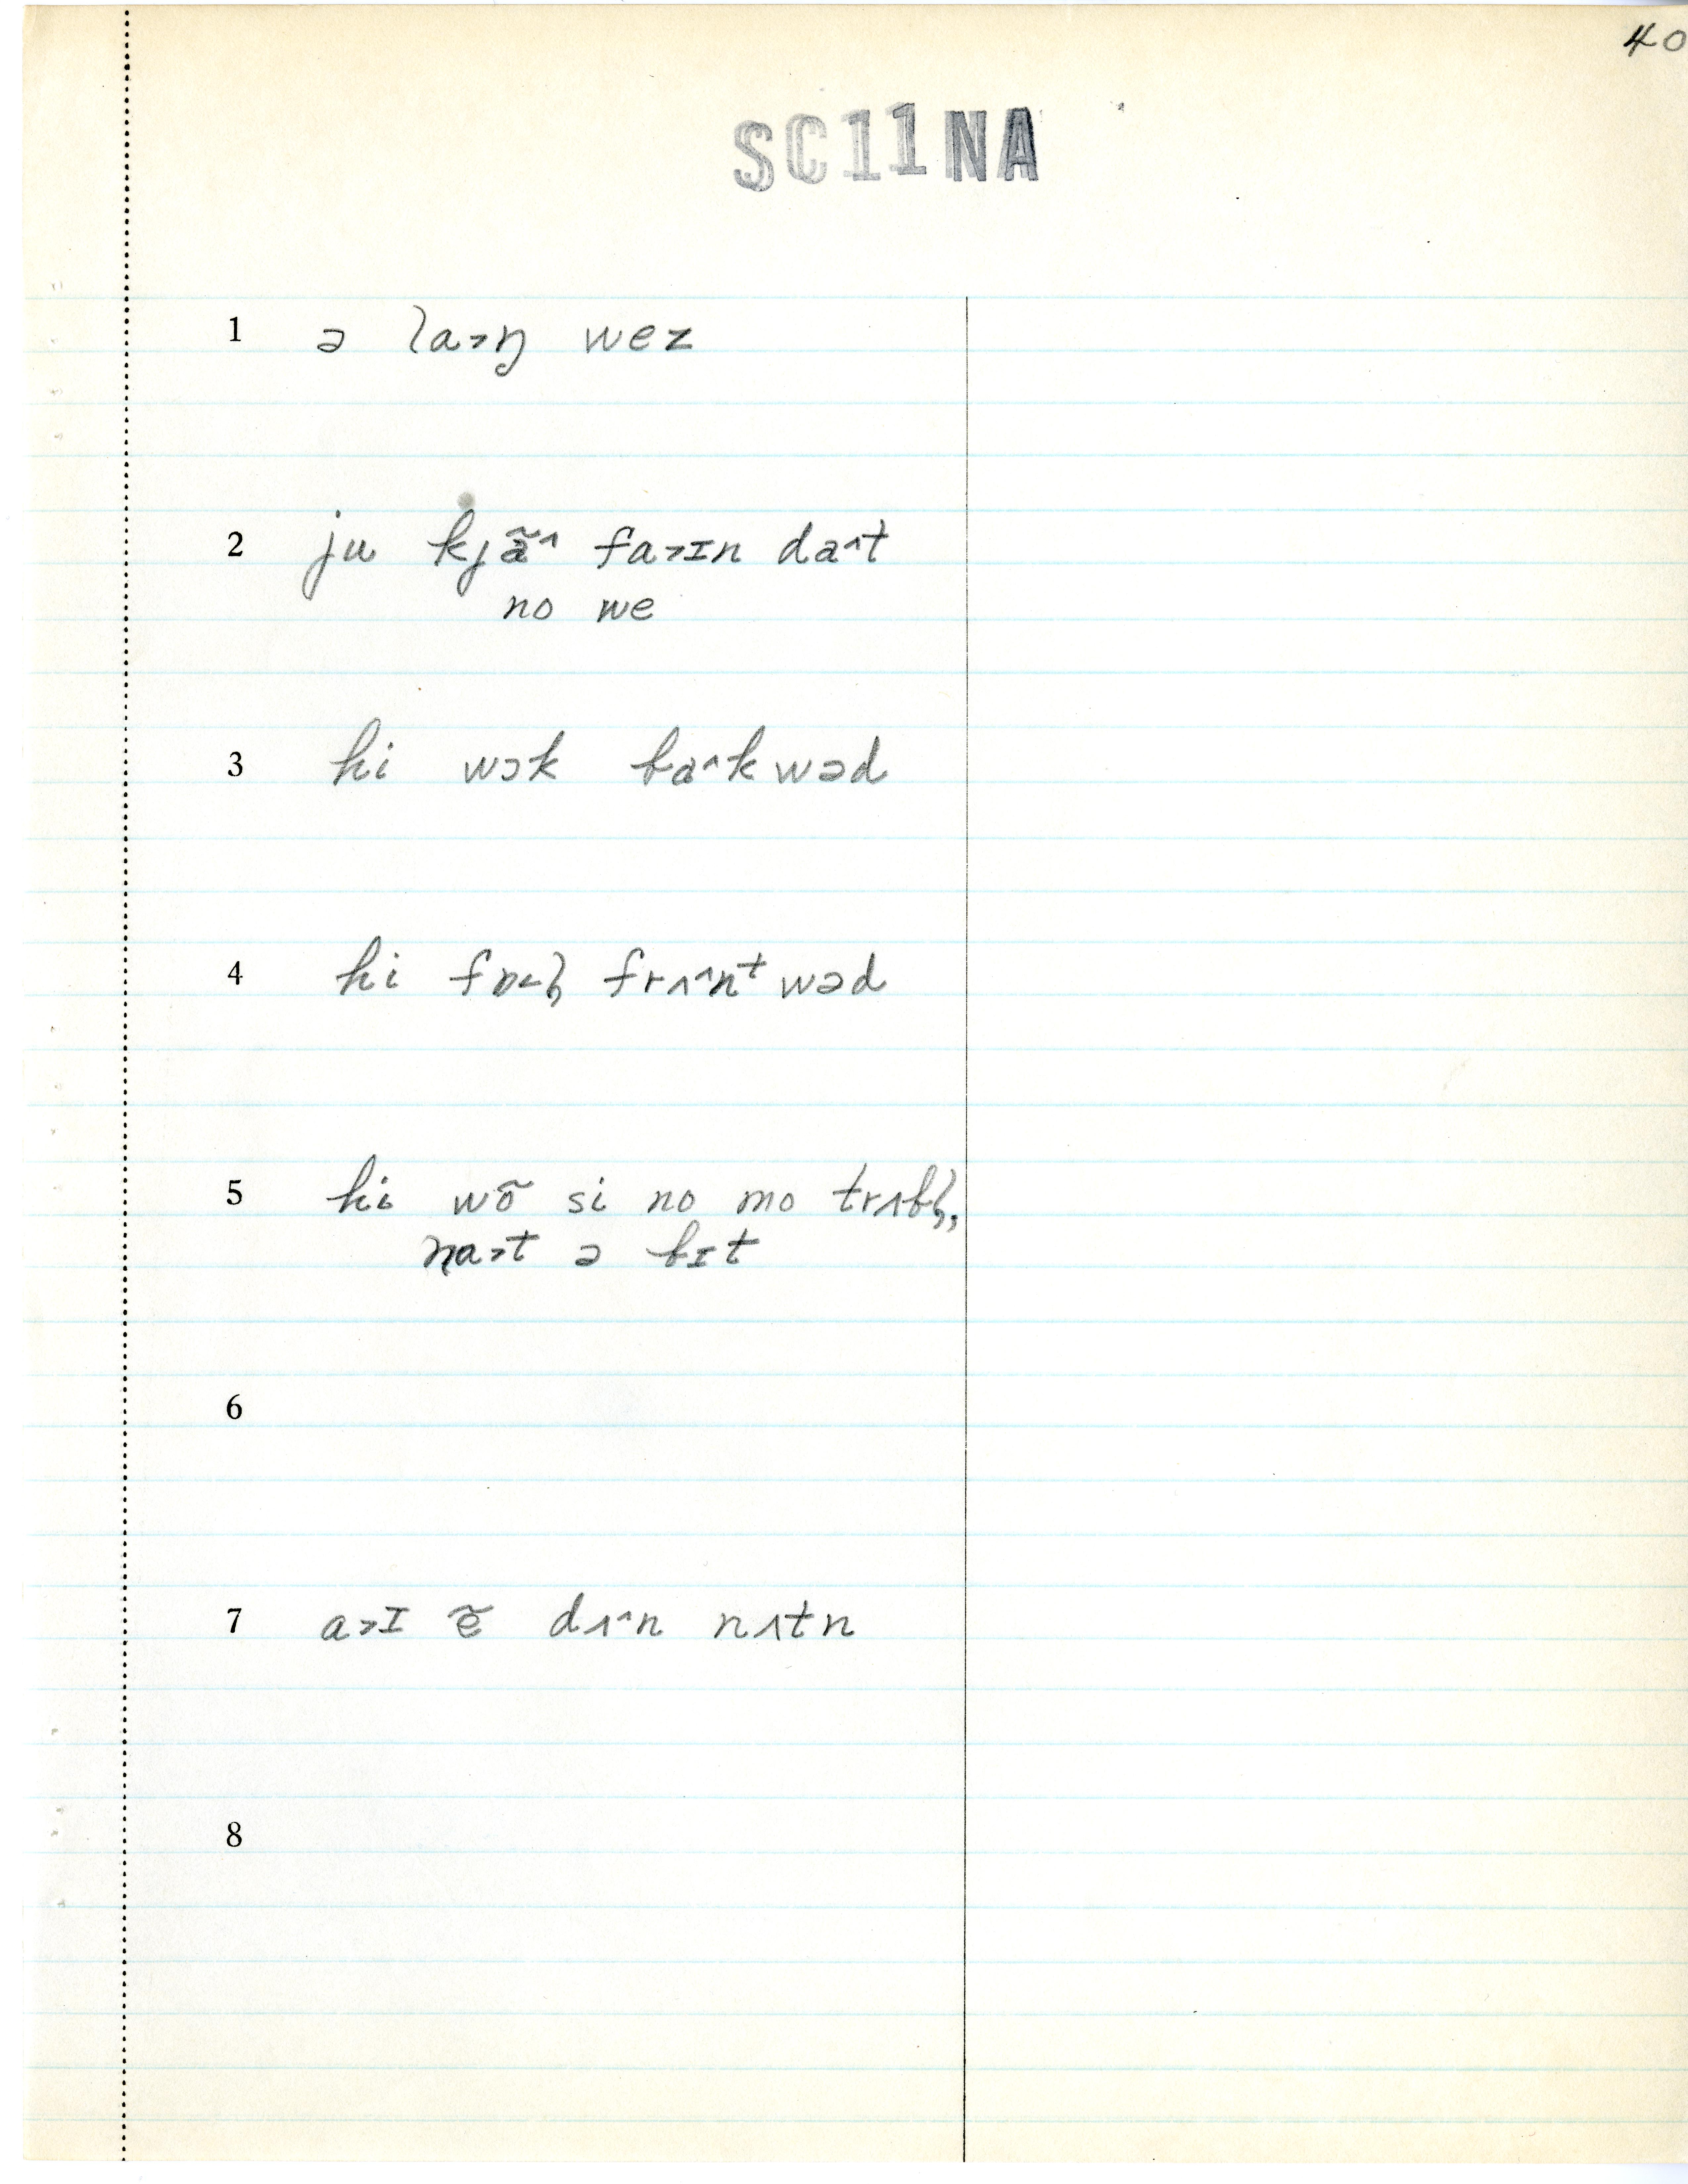 40
SC11NA
1 ə la˃ŋ wez
2 ju kjã˄ fa˃ɪn da˄t
no we
3 hi wɔk ba˄kwəd
4 hi fɒ˂l̩ frʌ˄nᵗwəd
5 hi wõ si no mo trʌbl̩,
na˃t ə bɪt
6
7 a˃ɪ ẽ dʌ˄n nʌtn
8